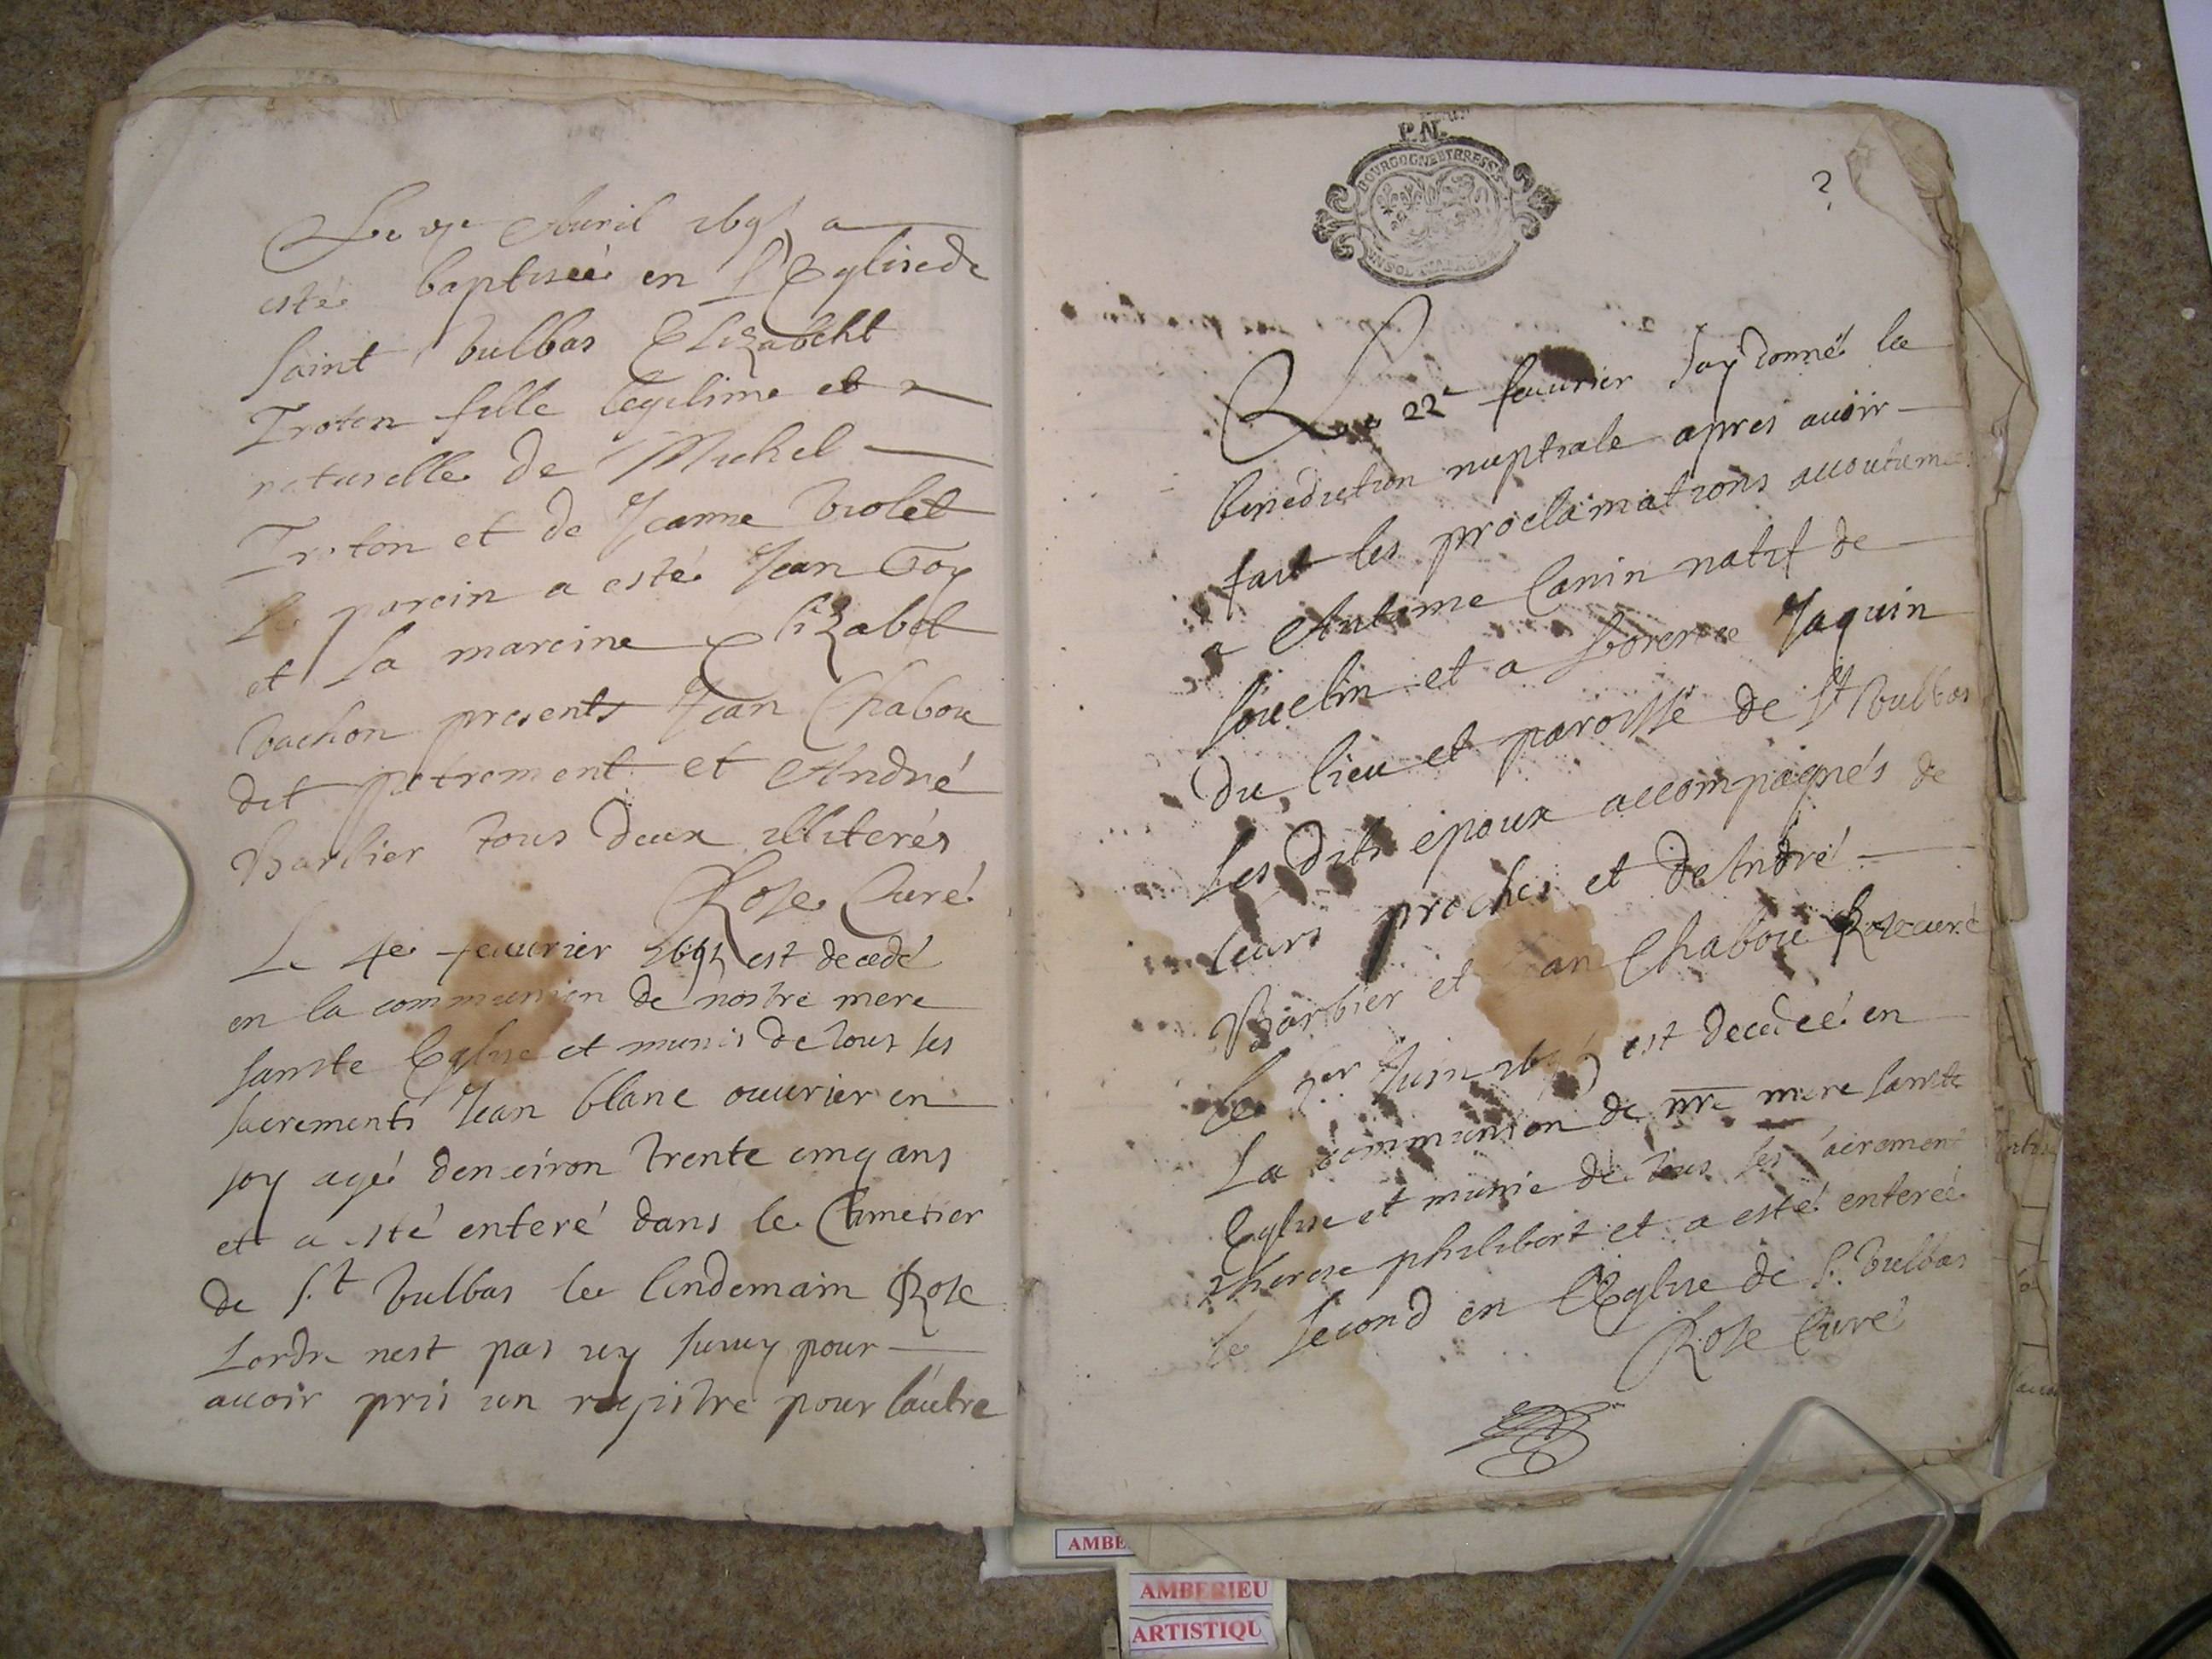 Le Auril a
esté baptiseé en L'Eglise de
saint Vulbas Elizabeht
Troton fille legitime et
naturelle de Michel
Troton et de Jeanne Violet
Le parein a esté Jean Goy
et La mareine Elizabet
Vachon presents Jean Chabou
dit petrement et André
Barbier tous deux illiterés
Rose Curé
Le 4e feuurier est decedé
en la communion de nostre mere
saincte Eglise et munis de tous les
sacrements Jean blanc ouurier en
soy agé denuiron trente cinq ans
et a esté enteré dans le Cimetier
de S.t Vulbas le lendemain Rose
Lordre nest pas icy suiuy pour
auoir pris un registre pour lautre
P.N.
BOURGOGNE ET BRESSE
?
Le 22e feuurier Jay donné la
benediction nuptiale apres auoir
fait les proclamations accoutumeés
a Antoine Canin natif de
souclin et a Jaquin
du lieu et paroisse de St Vulbas
les dits epoux accompagnés de
leurs proches et de André
Barbier et Jean Chabou Rose curé
Le 1er Juin est decedeé en
La communion de nre mere saincte
Eglise et munie de tous les sacrement
Therese philibert et a esté entereé
le second en l'Eglise de S.t Vulbas
Rose Curé
AMBE
AMBERIEU
ARTISTIQU